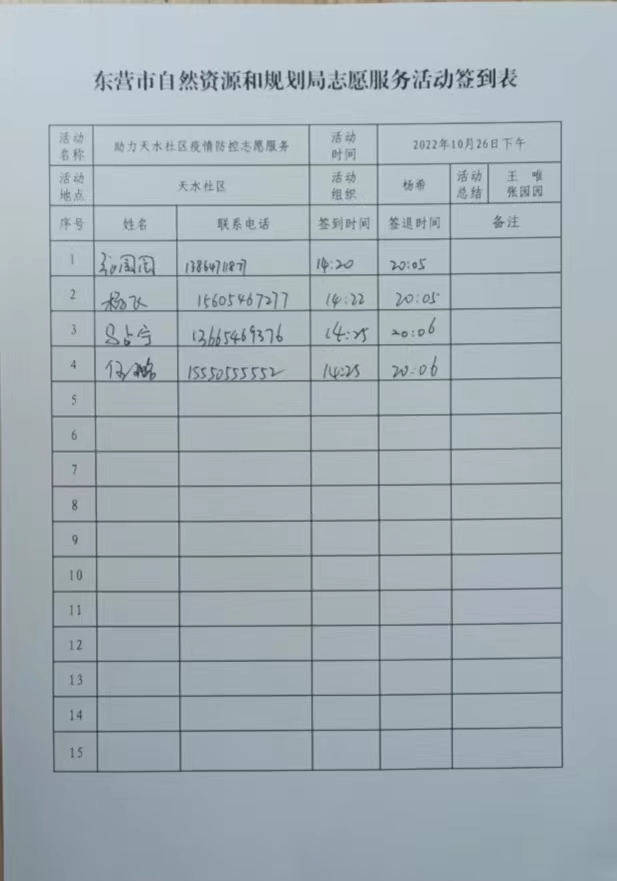 东营市自然资源和规划局志愿服务活动签到表
活动名称 助力天水社区疫情防控志愿服务 活动时间 2022年10月26日下午
活动地点 天水社区 活动组织 杨希 活动总结 王唯 张园园
序号 姓名 联系电话 签到时间 签退时间 备注
1 14:20 20:05
2 15605467277 14:22 20:05
3 吕占宁 13665469376 14:25 20:06
4 15550555552 14:25 20:06
5
6
7
8
9
10
11
12
13
14
15